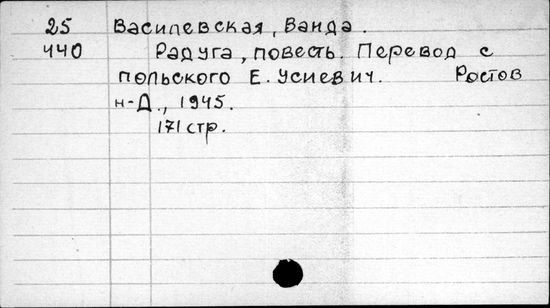 25 Василевская, Ванда.
440 Радуга, повесть. Перевод с
польского Е. Усиевич. Ростов
н-Д., 1945.
171 стр.